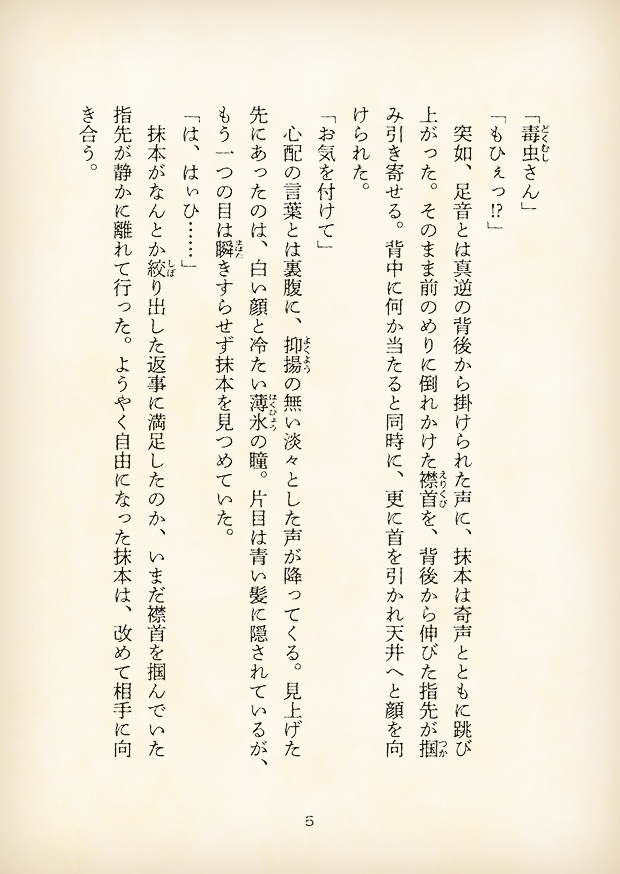 「毒虫さん」
「もひぇっ!?」
突如、足音とは真逆の背後から掛けられた声に、抹本は奇声とともに跳び
上がった。そのまま前のめりに倒れかけた襟首を、背後から伸びた指先が掴
み引き寄せる。背中に何か当たると同時に、更に首を引かれ天井へと顔を向
けられた。
「お気を付けて」
心配の言葉とは裏腹に、抑揚の無い淡々とした声が降ってくる。見上げた
先にあったのは、白い顔と冷たい薄氷の瞳。片目は青い髪に隠されているが、
もう一つの目は瞬きすらせず抹本を見つめていた。
「は、はぃひ……」
抹本がなんとか絞り出した返事に満足したのか、いまだ襟首を掴んでいた
指先が静かに離れて行った。ようやく自由になった抹本は、改めて相手に向
き合う。
5